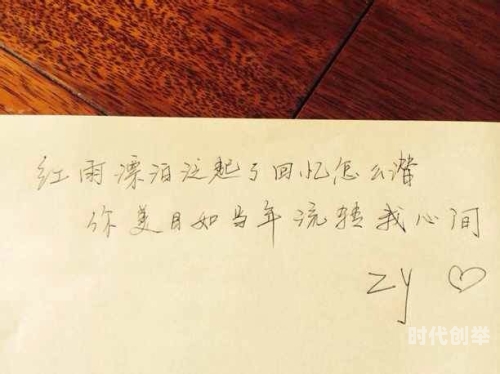 红雨漂泊泛起了回忆怎么潜
你美目如当年流转我心间
zy
时代创举